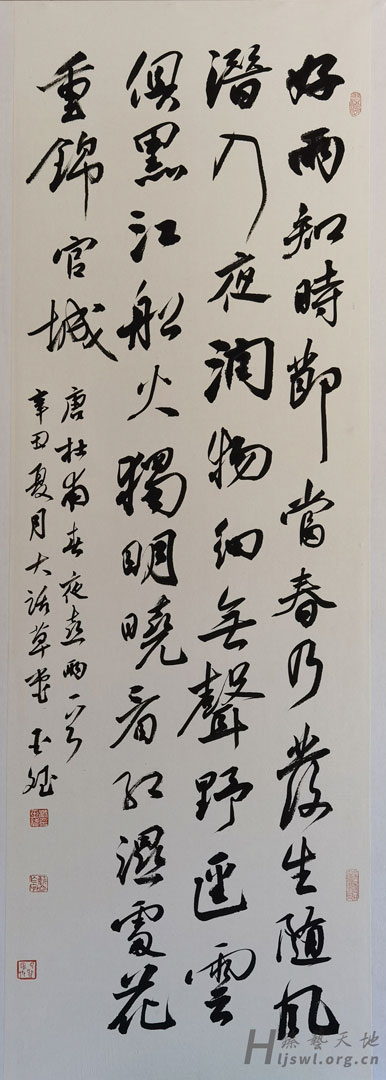 好雨知時節當春乃發生隨風
潛入夜潤物細無聲野逕雲
俱黑江船火獨明曉看紅濕處花
重錦官城
唐杜甫春夜喜雨一首
辛丑夏月大話草堂
藝天地
Hljswl.org.cn